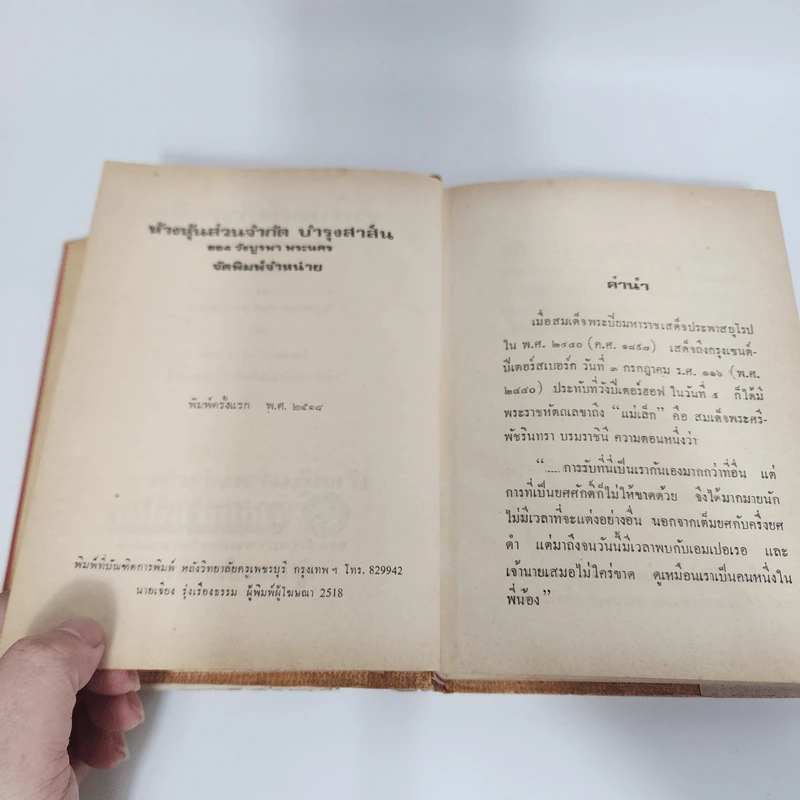 ห้างหุ้นส่วนจำกัด บำรุงสาส์น
๑๑๕ วังบูรพา พระนคร
จัดพิมพ์จำหน่าย
พิมพ์ครั้งแรก พ.ศ. ๒๕๑๘
พิมพ์ที่บัณฑิตการพิมพ์ หลังวิทยาลัยครูเพชรบุรี กรุงเทพ ฯ โทร. 829942
นายเซียง รุ่งเรืองธรรม ผู้พิมพ์ผู้โฆษณา 2518
คำนำ
เมื่อสมเด็จพระปิยมหาราชเสด็จประพาสยุโรป
ใน พ.ศ. ๒๔๔๐ (ค.ศ. ๑๘๙๗) เสด็จถึงกรุงเซนต์-
ปีเตอร์สเบอร์ก วันที่ ๓ กรกฎาคม ร.ศ. ๑๑๖ (พ.ศ.
๒๔๔๐) ประทับที่วังปีเตอร์ฮอฟ ในวันที่ ๕ ก็ได้มี
พระราชหัตถเลขาถึง “แม่เล็ก” คือ สมเด็จพระศรี-
พัชรินทรา บรมราชินี ความตอนหนึ่งว่า
“....การรับที่นี่เป็นเรากันเองมากกว่าที่อื่น แต่
การที่เป็นยศศักดิ์ก็ไม่ให้ขาดด้วย จึงได้มากมายนัก
ไม่มีเวลาที่จะแต่งอย่างอื่น นอกจากเต็มยศกับครึ่งยศ
ดำ แต่มาถึงจนวันนี้มีเวลาพบกับเอมเปอเรอ และ
เจ้านายเสมอไม่ใคร่ขาด ดูเหมือนเราเป็นคนหนึ่งใน
พี่น้อง”